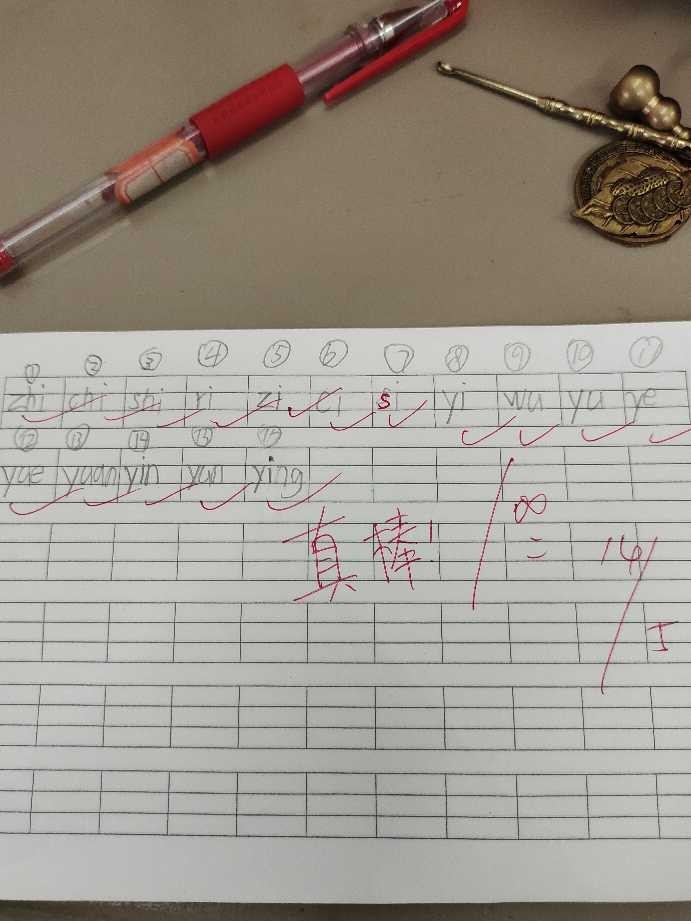 ① ② ③ ④ ⑤ ⑥ ⑦ ⑧ ⑨ ⑩ ⑪
zhi chi shi ri zi ci si yi wu yu ye
⑫ ⑬ ⑭ ⑮ ⑮
yue yuan yin yun ying
真棒!